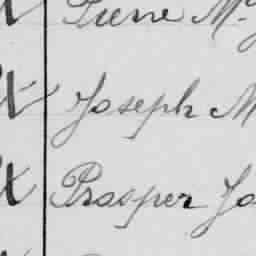 Pierre M
Joseph M
Prosper Jo